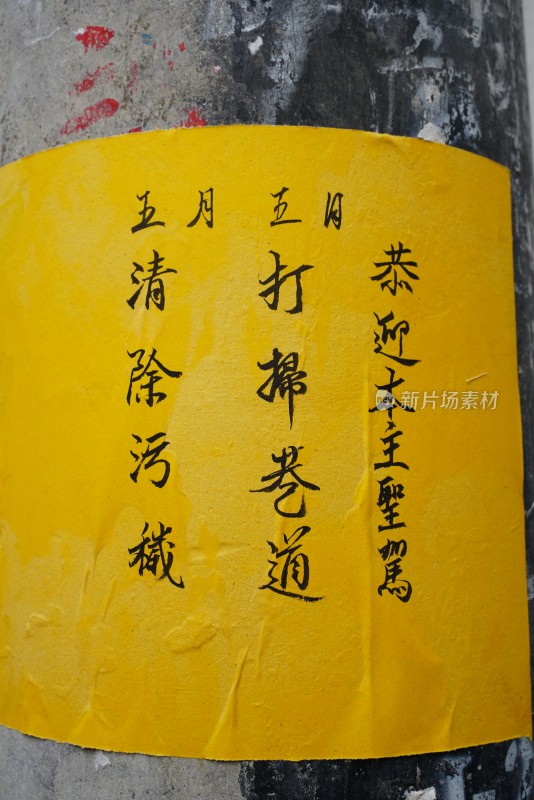 五月五日
恭迎本主聖駕
打掃巷道
清除污穢
new 新片场素材